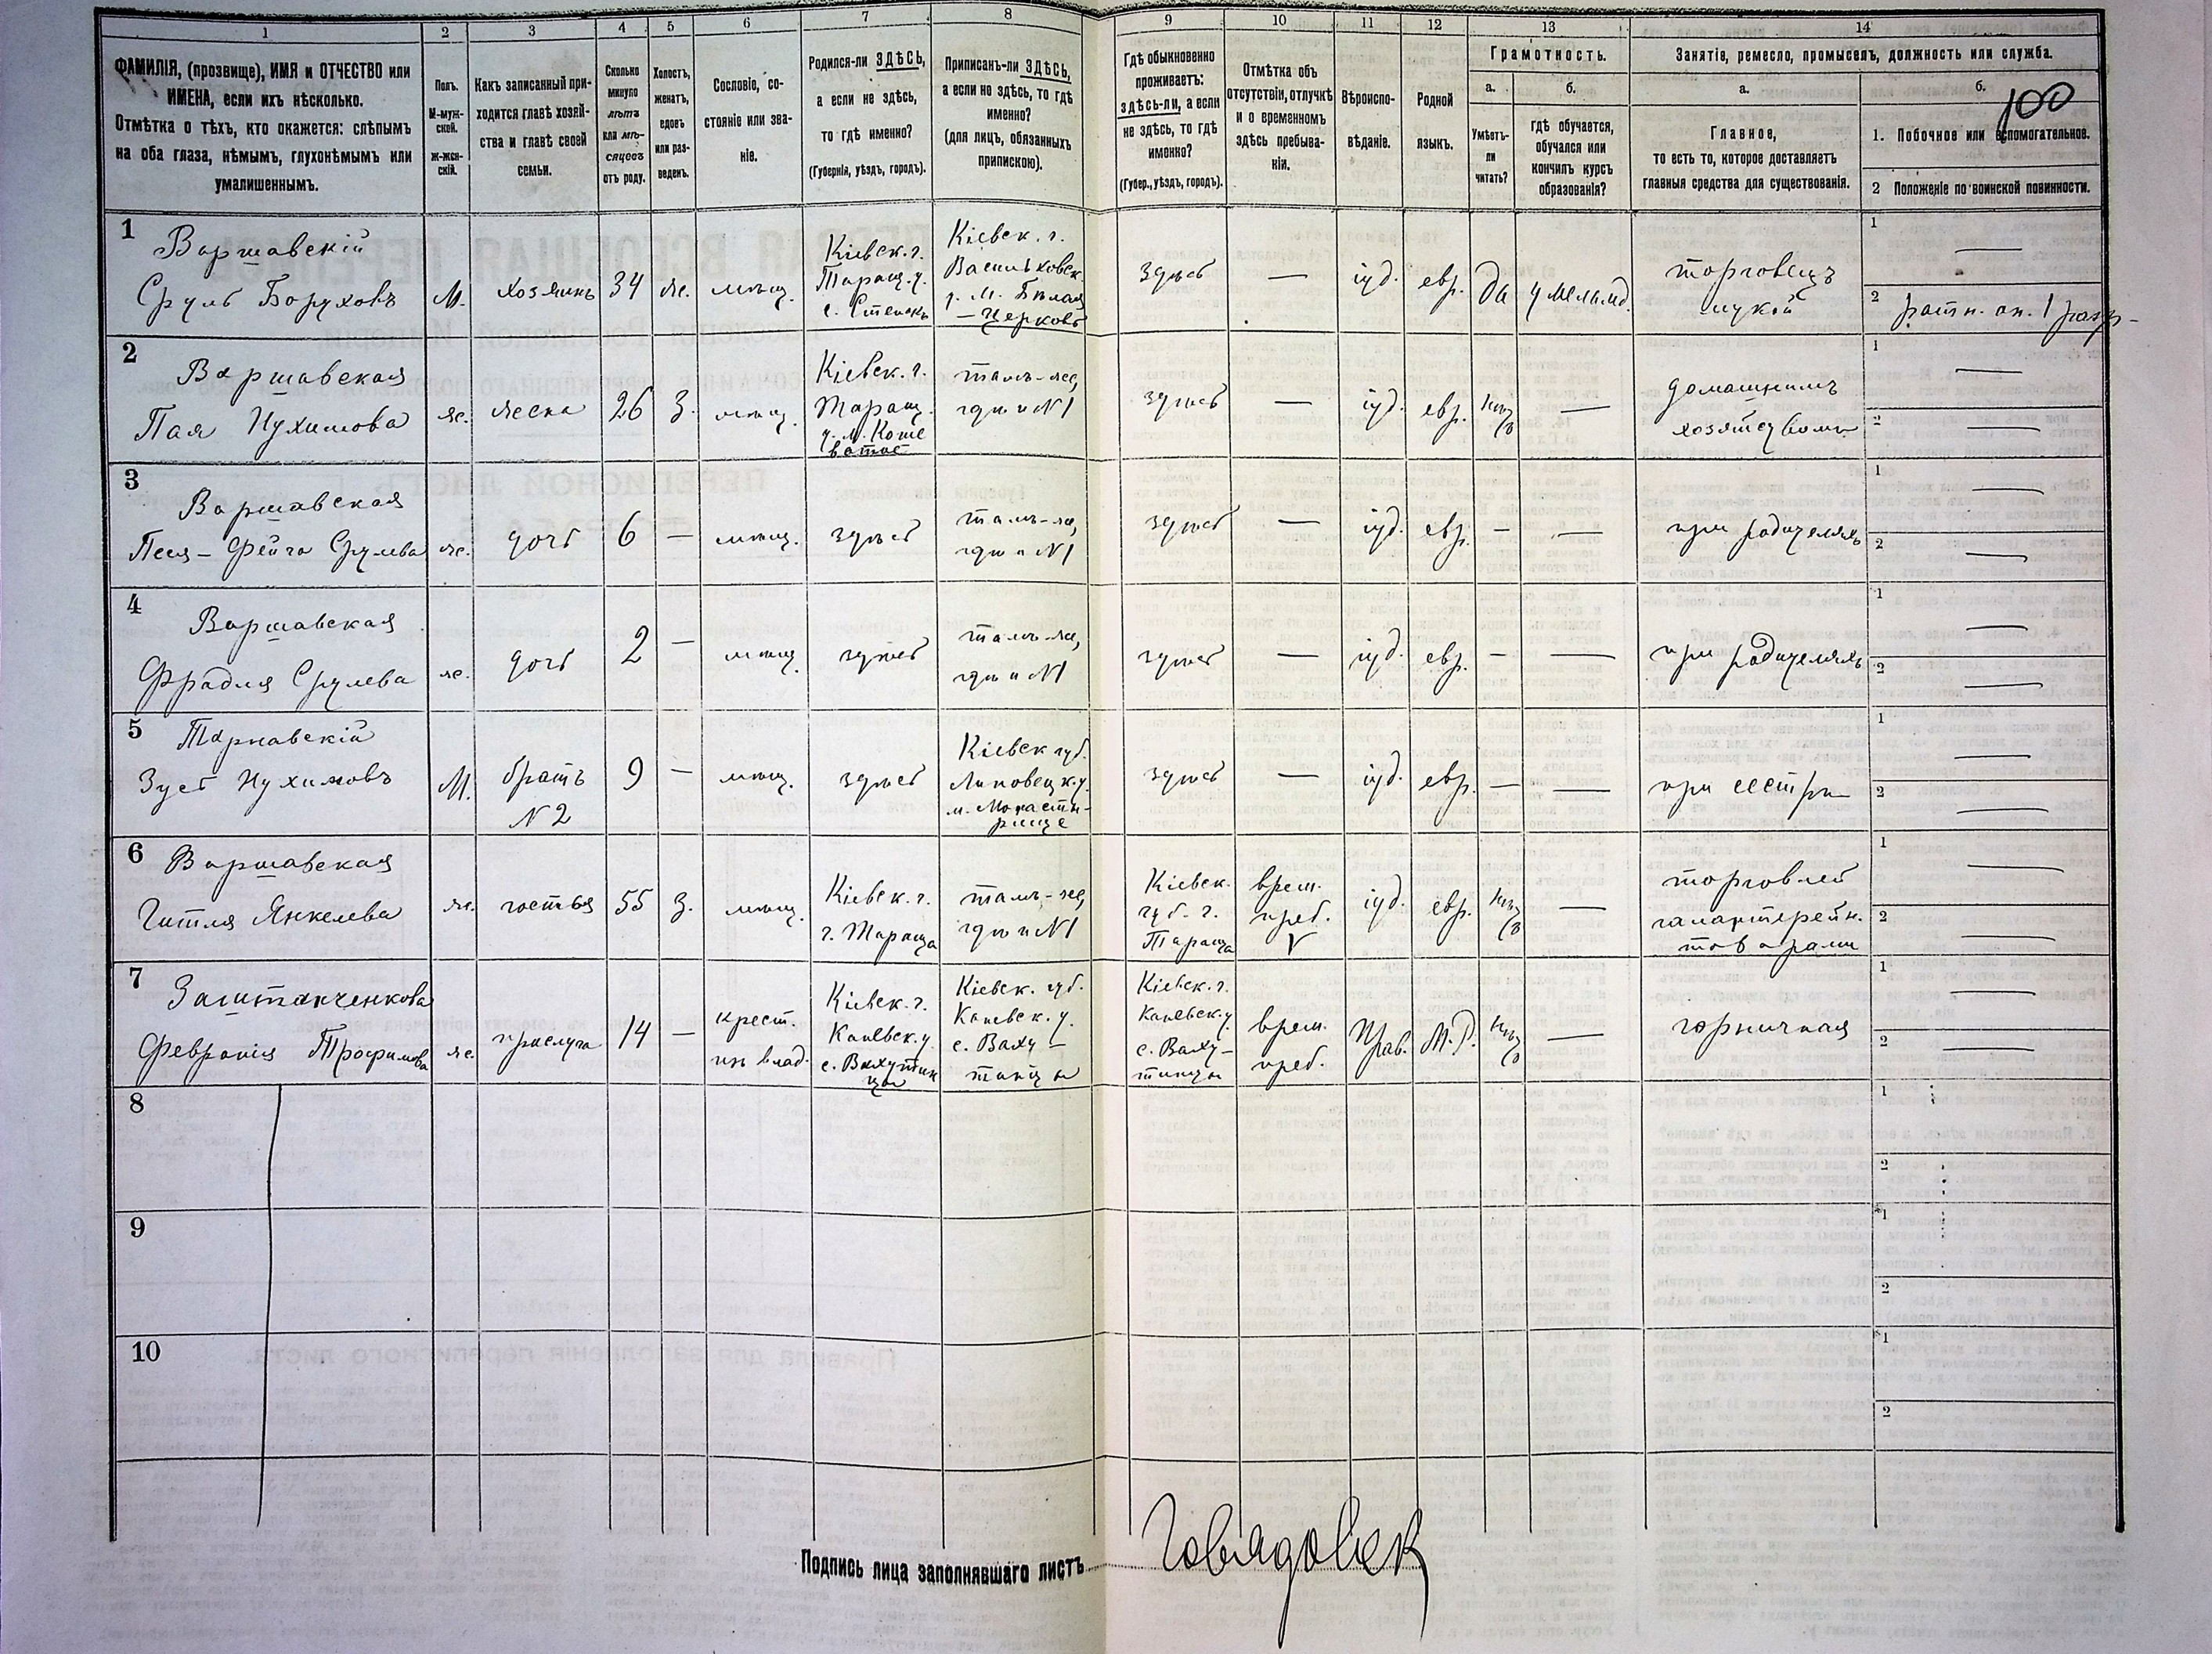 1 2 3 4 5 6 7 8 9 10 11 12 13 14
ФАМИЛІЯ, (прозвище), ИМЯ и ОТЧЕСТВО или
ИМЕНА, если ихъ нѣсколько.
Отмѣтка о тѣхъ, кто окажется: слѣпымъ
на оба глаза, нѣмымъ, глухонѣмымъ или
умалишеннымъ.
Полъ.
М-муж-
ской.
Ж-жен-
скій.
Какъ записанный при-
ходится главѣ хозяй-
ства и главѣ своей
семьи.
Сколько
минуло
лѣтъ
или мѣ-
сяцевъ
отъ роду.
Холостъ,
женатъ,
вдовъ
или раз-
веденъ.
Сословіе, со-
стояніе или зва-
ніе.
Родился-ли ЗДѢСЬ,
а если не здѣсь,
то гдѣ именно?
(Губернія, уѣздъ, городъ).
Приписанъ-ли ЗДѢСЬ,
а если не здѣсь, то гдѣ
именно?
(для лицъ, обязанныхъ
припискою).
Гдѣ обыкновенно
проживаетъ:
здѣсь-ли, а если
не здѣсь, то гдѣ
именно?
(Губер., уѣздъ, городъ).
Отмѣтка объ
отсутствіи, отлучкѣ
и о временномъ
здѣсь пребыва-
ніи.
Вѣроиспо-
вѣданіе.
Родной
языкъ.
Грамотность.
а.
Умѣетъ-
ли
читать?
б.
гдѣ обучается,
обучался или
кончилъ курсъ
образованія?
Занятіе, ремесло, промыселъ, должность или служба.
а.
Главное,
то есть то, которое доставляетъ
главныя средства для существованія.
б.
100
1. Побочное или вспомогательное.
2 Положеніе по воинской повинности.
1
Варшавскій
Сруль Боруховъ
М.
хозяинъ
34
же.
мѣщ.
Кіевск. г.
Таращ. у.
с. Степокъ
Кіевск. г.
Васильковск.
у. м. Бѣлая
-Церковь
здѣсь
—
іуд.
евр.
да
у меламд.
торговецъ
мукой
1 —
2 ратн. оп. 1 разр-
2
Варшавская
Пая Нухимова
же.
жена
26
З.
мѣщ.
Кіевск. г.
Таращ.
у. м. Коше
ватое
тамъ-же,
гдѣ и №1
здѣсь
—
іуд.
евр.
нѣтъ
—
домашнимъ
хозяйствомъ
1 —
2 —
3
Варшавская
Песя-Фейга Срулева
же.
дочь
6
—
мѣщ.
здѣсь
тамъ-же,
гдѣ и №1
здѣсь
—
іуд.
евр.
—
—
при родителяхъ
1 —
2 —
4
Варшавская
Фрадля Срулева
же.
дочь
2
—
мѣщ.
здѣсь
тамъ-же,
гдѣ и №1
здѣсь
—
іуд.
евр.
—
—
при родителяхъ
1 —
2 —
5
Тарнавскій
Зусь Нухимовъ
М.
братъ
№ 2
9
—
мѣщ.
здѣсь
Кіевск губ.
Липовецк. у.
м. Монасты-
рище
здѣсь
—
іуд.
евр.
—
—
при сестрѣ
1 —
2 —
6
Варшавская
Гитля Янкелева
же.
гостья
55
З.
мѣщ.
Кіевск. г.
г. Тараща
тамъ-же,
гдѣ и №1
Кіевск.
губ. г.
Тараща
врем.
преб.
V
іуд.
евр.
нѣтъ
—
торговлей
галантерейн.
товарами
1 —
2 —
7
Февронія Трофимова
же.
прислуга
14
—
крест.
из влад.
Кіевск. г.
Каневск. у.
Кіевск. губ.
Каневск. у.
Кіевск. г.
Каневск. у.
врем.
преб.
Прав.
М. Р.
нѣтъ
—
горничная
1
2 —
8
1
2
9
1
2
10
1
2
Подпись лица заполнявшаго листъ